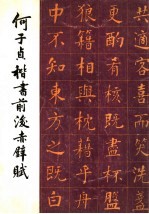 共適客喜而笑洗盞
更酌肴核既盡杯盤
狼籍相與枕籍乎舟
中不知東方之既白
何子貞楷書前後赤壁賦